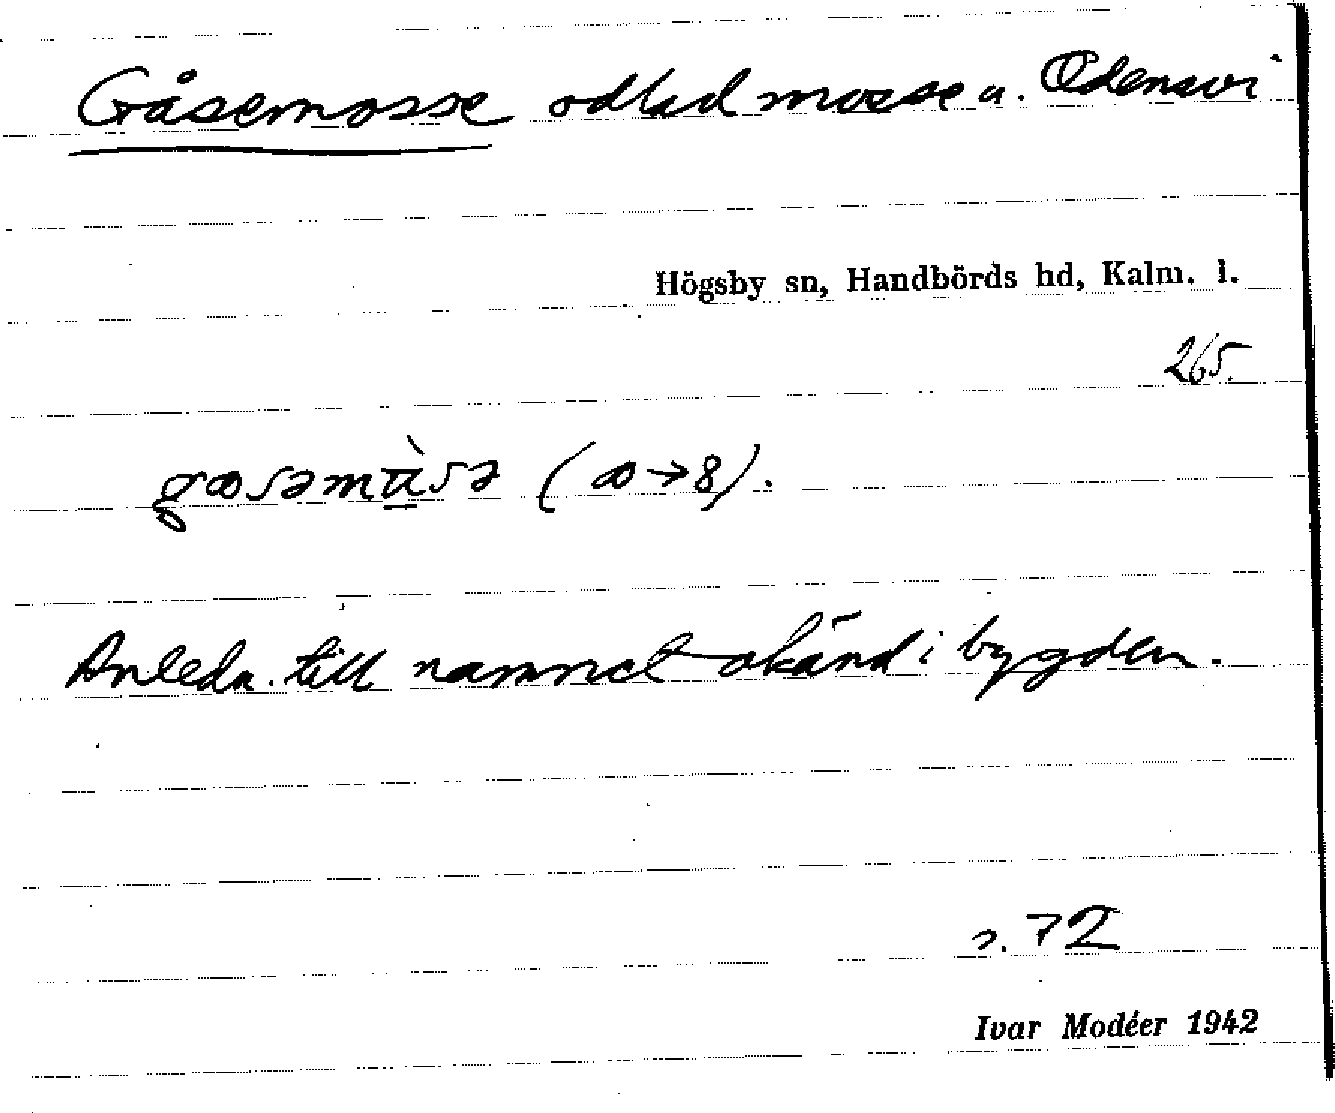 Gåsemosse odlad mosse u. Odensvi
Högsby sn, Handbörds hd, Kalm. l.
265.
Anledn. till namnet okänd i bygden.
s. 72
Ivar Modéer 1942